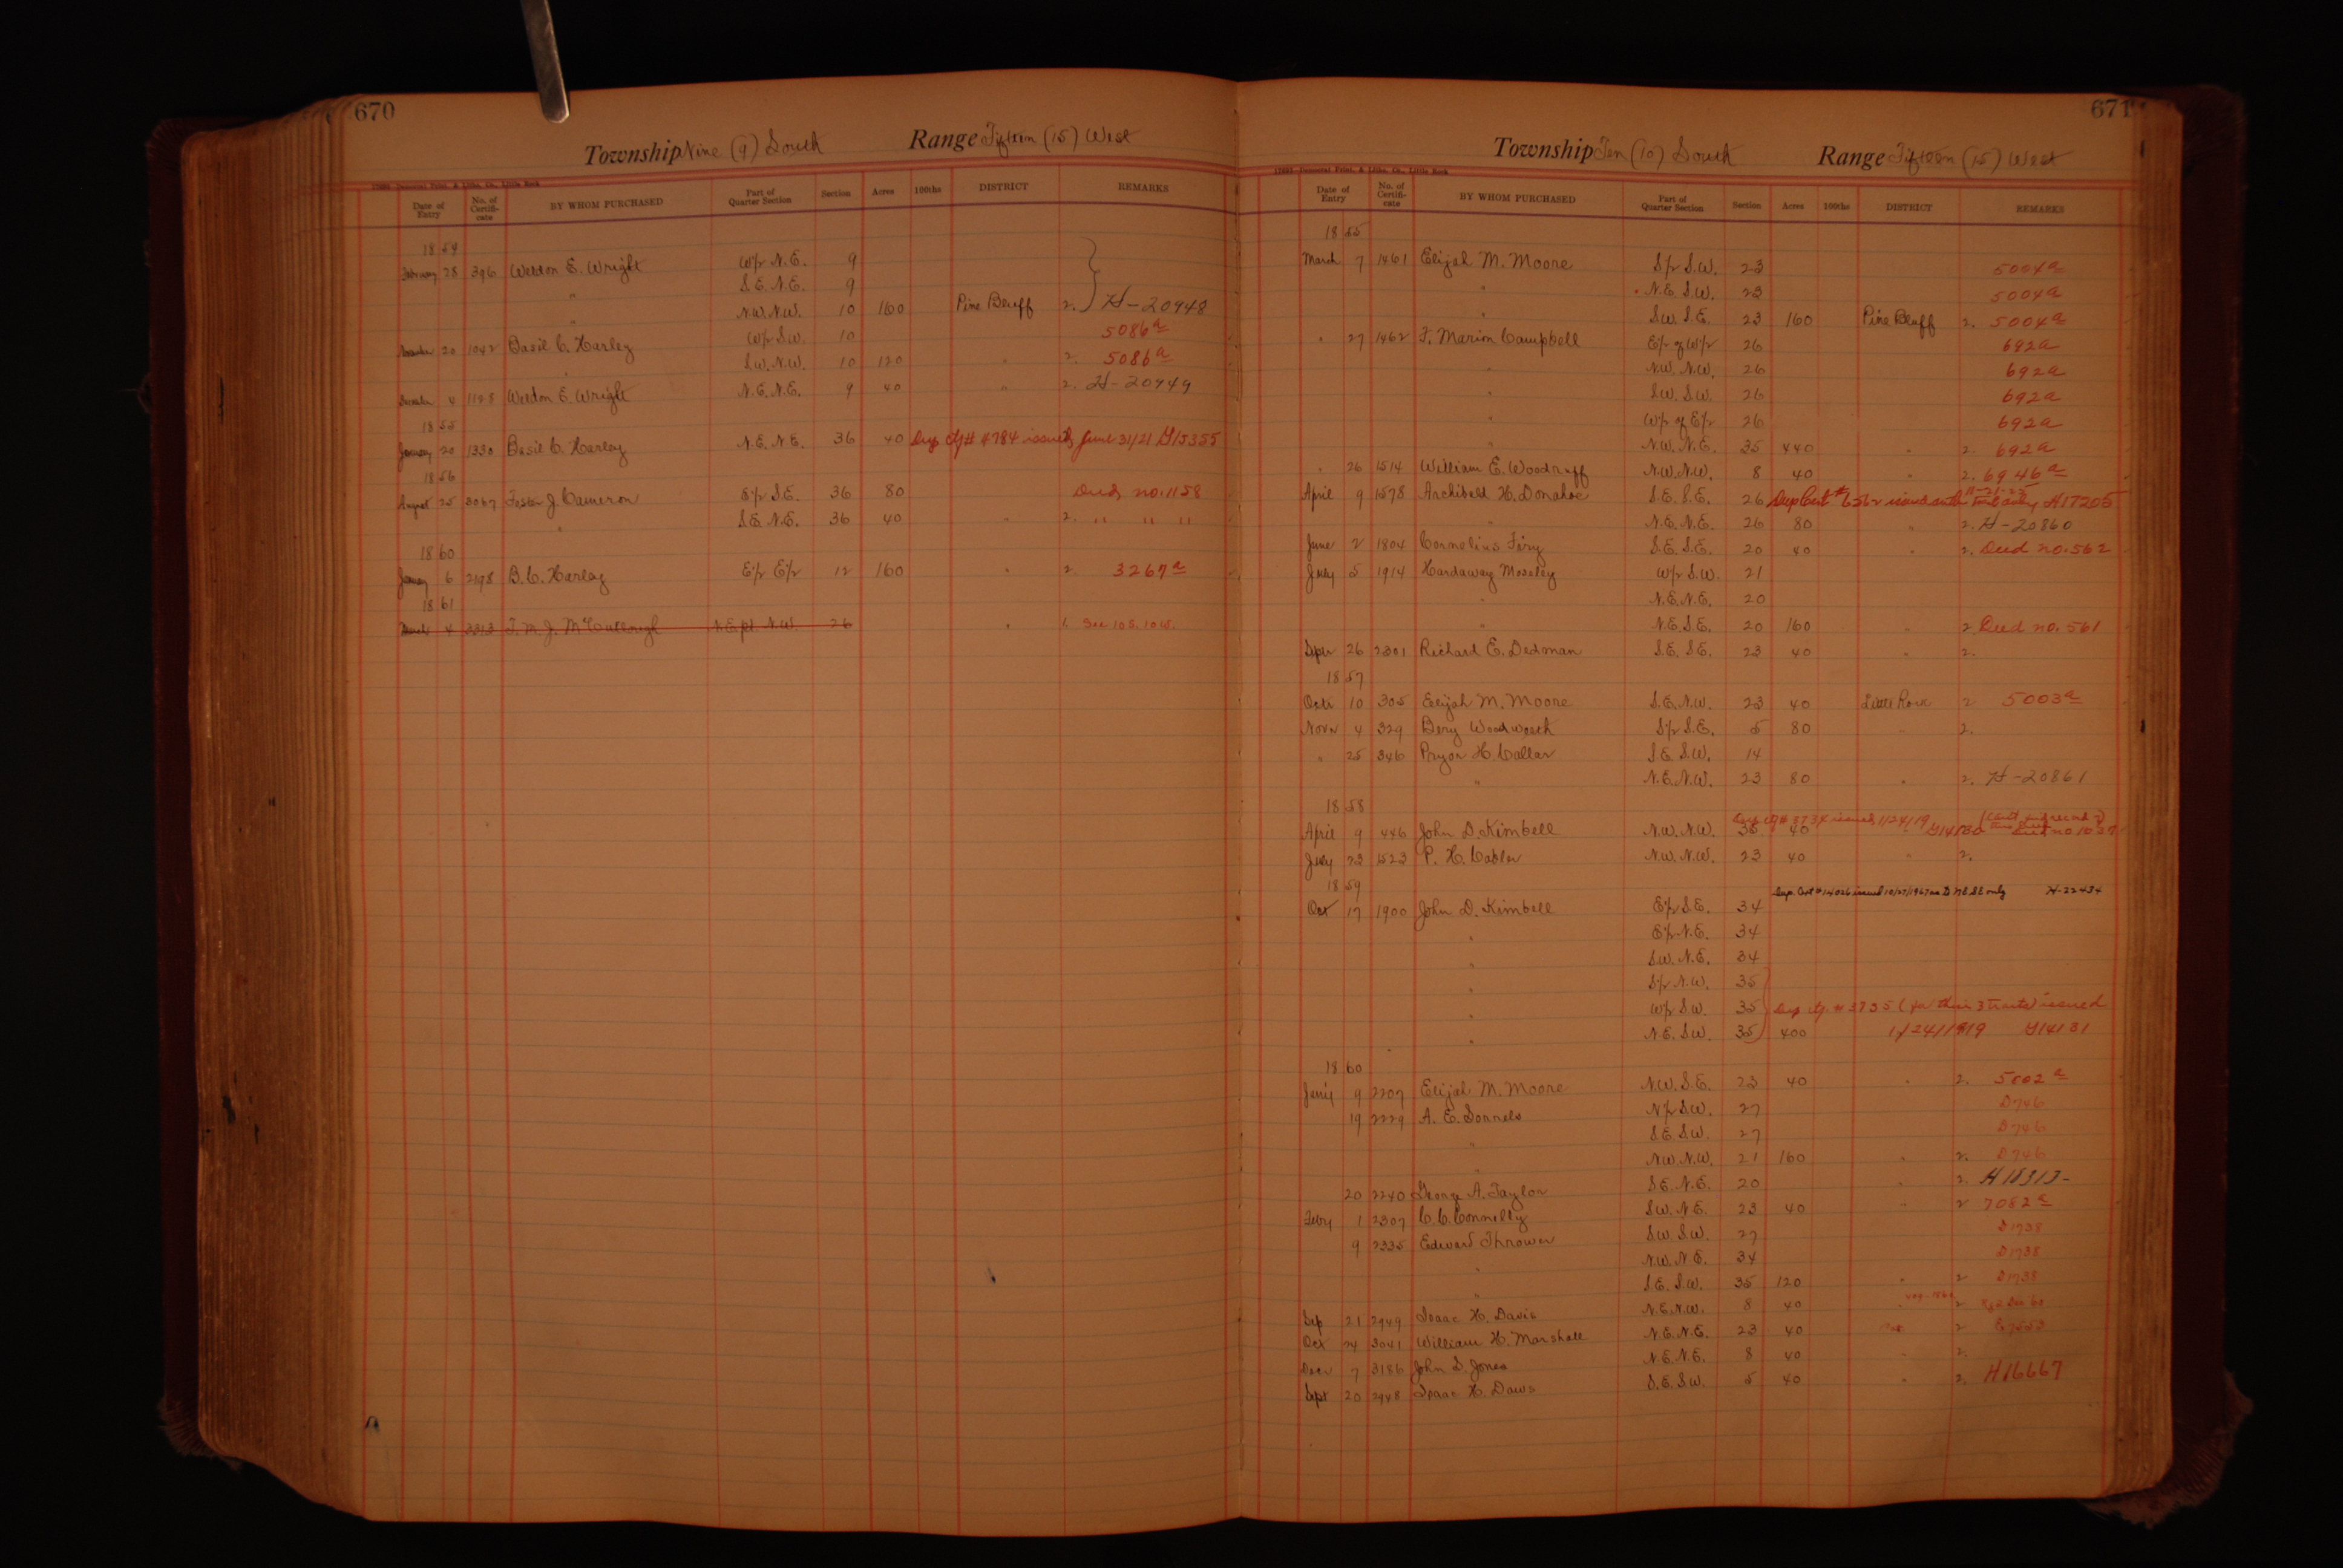 670
Township Nine (9) South Range Fifteen (15) West
Date of Entry No. of Certificate BY WHOM PURCHASED Part of Quarter Section Section Acres 100ths DISTRICT REMARKS
1854
February 28 396 Weldon E. Wright W½ N.E. 9
" S.E. N.E. 9
" N.W. N.W. 10 160 Pine Bluff 2. H-20948
1042 Basil C. Harley W½ S.W. 10 5086a
" S.W. N.W. 10 120 " 2. 5086a
December 4 1128 Weldon E. Wright N.E. N.E. 9 40 " 2. H-20949
1855
January 20 1330 Basil C. Harley N.E. N.E. 36 40 Dup ctf # 4784 issued June 31/21 G15355
1856
August 25 3067 Foster J. Cameron S½ S.E. 36 80 Deed no. 1158
" S.E. N.E. 36 40 " 2. " " "
1860
January 6 2198 B. C. Harley E½ E½ 12 160 " 2. 3267a
1861
March 4 3313 T. M. J. McCullough N.E. pt. N.W. 26 " 1. See 10 S. 10 W.
671
Township Ten (10) South Range Fifteen (15) West
Date of Entry No. of Certificate BY WHOM PURCHASED Part of Quarter Section Section Acres 100ths DISTRICT REMARKS
1855
March 7 1461 Elijah M. Moore S½ S.W. 23 5004a
" N.E. S.W. 23 5004a
" S.W. S.E. 23 160 Pine Bluff 2. 5004a
" 27 1462 F. Marion Campbell E½ of W½ 26 692a
" N.W. N.W. 26 692a
" S.W. S.W. 26 692a
" W½ of E½ 26 692a
" N.W. N.E. 35 440 " 2. 692a
" 26 1514 William E. Woodruff N.W. N.W. 8 40 " 2. 6946a
April 9 1578 Archibald H. Donahoe S.E. S.E. 26 Dup Cert # 6562 issued H17205
" N.E. N.E. 26 80 " 2. H-20860
June 2 1804 Cornelius Fizy S.E. S.E. 20 40 " 2. Deed no. 562
July 5 1914 Hardaway Moseley W½ S.W. 21
N.E. N.E. 20
" N.E. S.E. 20 160 " 2 Deed no. 561
Septr 26 2301 Richard E. Dedman S.E. S.E. 23 40 " 2.
1857
Octr 10 305 Elijah M. Moore S.E. N.W. 23 40 Little Rock 2 5003a
Novr 4 329 Bery Woodworth S½ S.E. 5 80 " 2.
" 25 346 Pryor H. Collar S.E. S.W. 14
" N.E. N.W. 23 80 " 2. H-20861
1858
Dup ctf # 3734 issued 1/24/19
April 9 446 John D. Kimbell N.W. N.W. 35 40 " G14130
July 23 1523 P. H. N.W. N.W. 23 40 " 2.
1859
Dup. Cert # 14026 issued 10/27/1967 N.E. S.E. only H-22434
Oct 17 1900 John D. Kimbell E½ S.E. 34
" E½ N.E. 34
" S.W. N.E. 34
" S½ N.W. 35
" W½ S.W. 35 Dup ctf. # 3735 (for these 3 tracts) issued
" N.E. S.W. 35 400 1/24/1919 G14131
1860
Jany 9 2207 Elijah M. Moore N.W. S.E. 23 40 " 2. 5002a
19 2229 A. E. Sonnels N½ S.W. 27 D746
" S.E. S.W. 27 D746
" N.W. N.W. 21 160 " 2. D746
20 2240 George A. Taylor S.E. N.E. 20 " 2.
Feby 1 2307 C. C. Connelly S.W. N.E. 23 40 " 2 7082a
9 2335 Edward Thrower S.W. S.W. 27 D1738
" N.W. N.E. 34 D1738
" S.E. S.W. 35 120 " 2 D1738
Sep 21 2949 Isaac H. Davis N.E. N.W. 8 40 " 2
Oct 24 3041 William H. Marshall N.E. N.E. 23 40 2
Decr 7 3186 John S. Jones N.E. N.E. 8 40 " 2.
Sept 20 2948 Isaac H. Davis S.E. S.W. 5 40 " 2. H16667